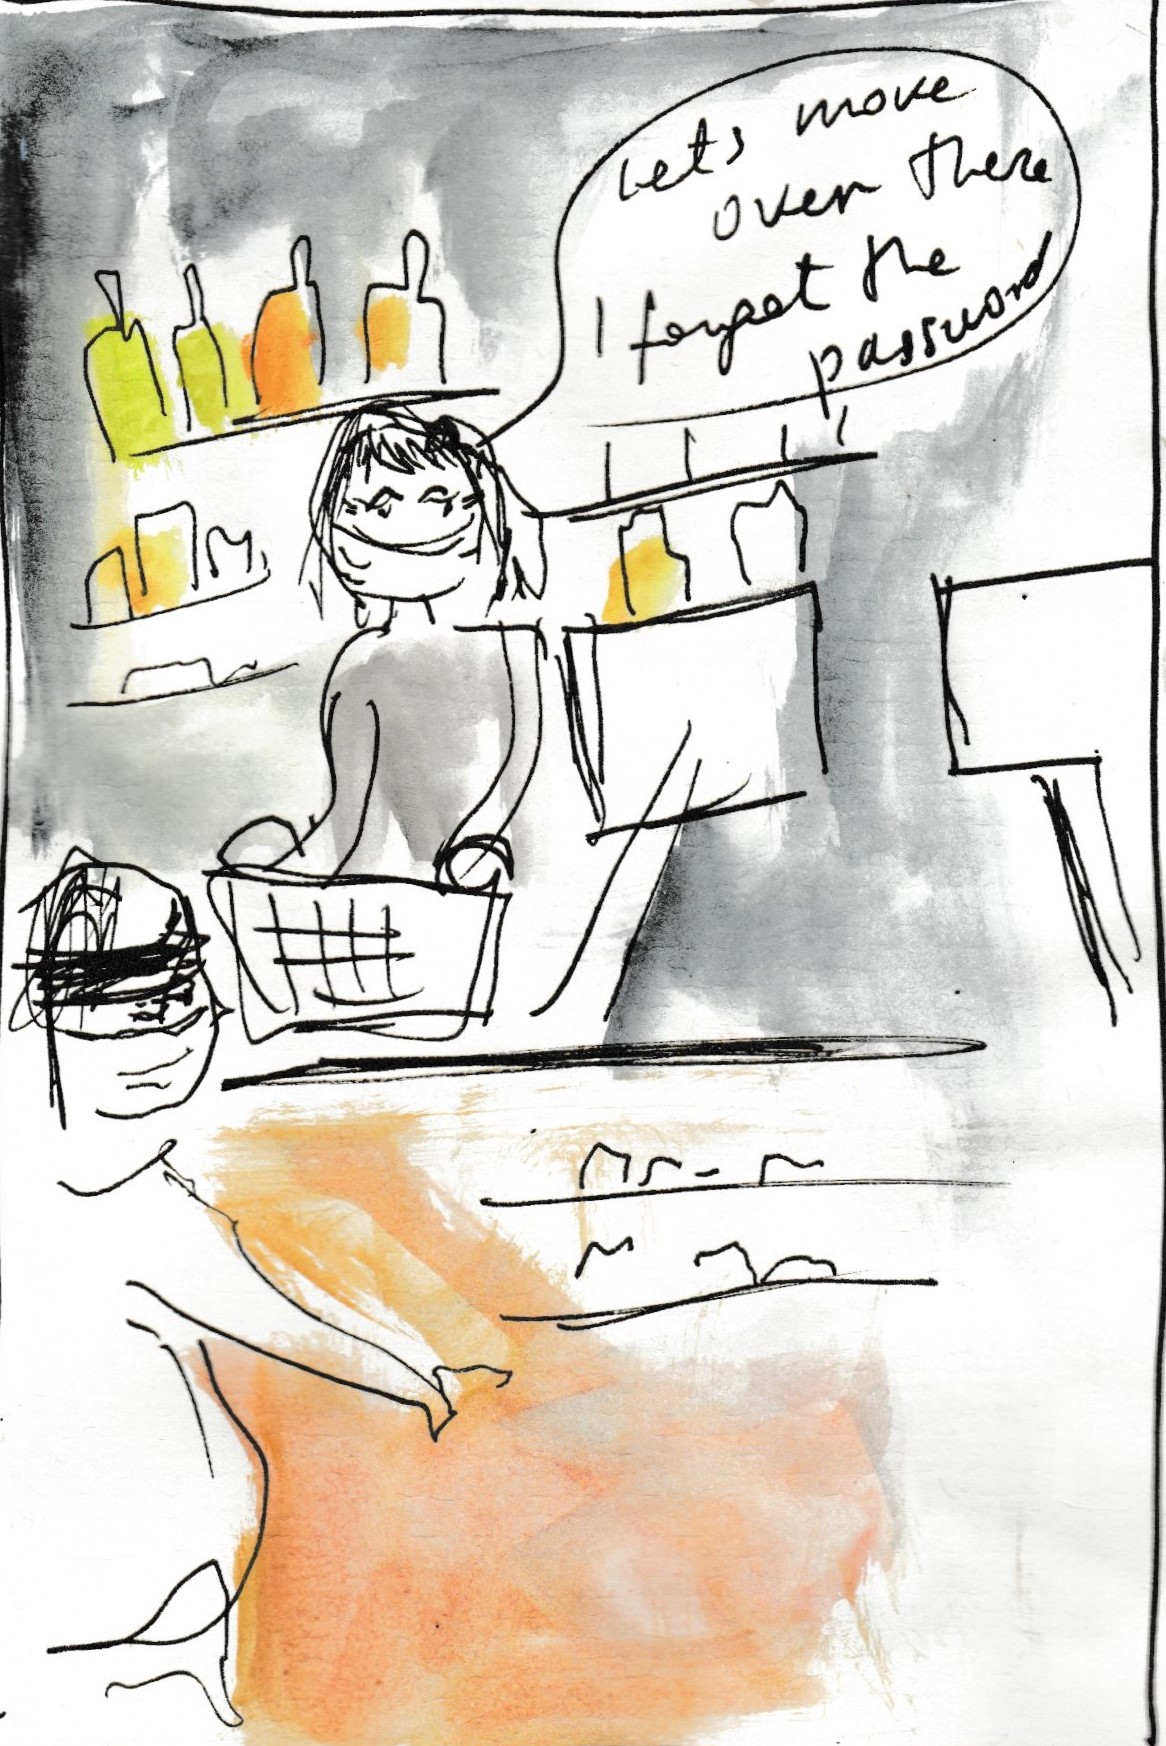 Let's move
over there
I forgot the
password